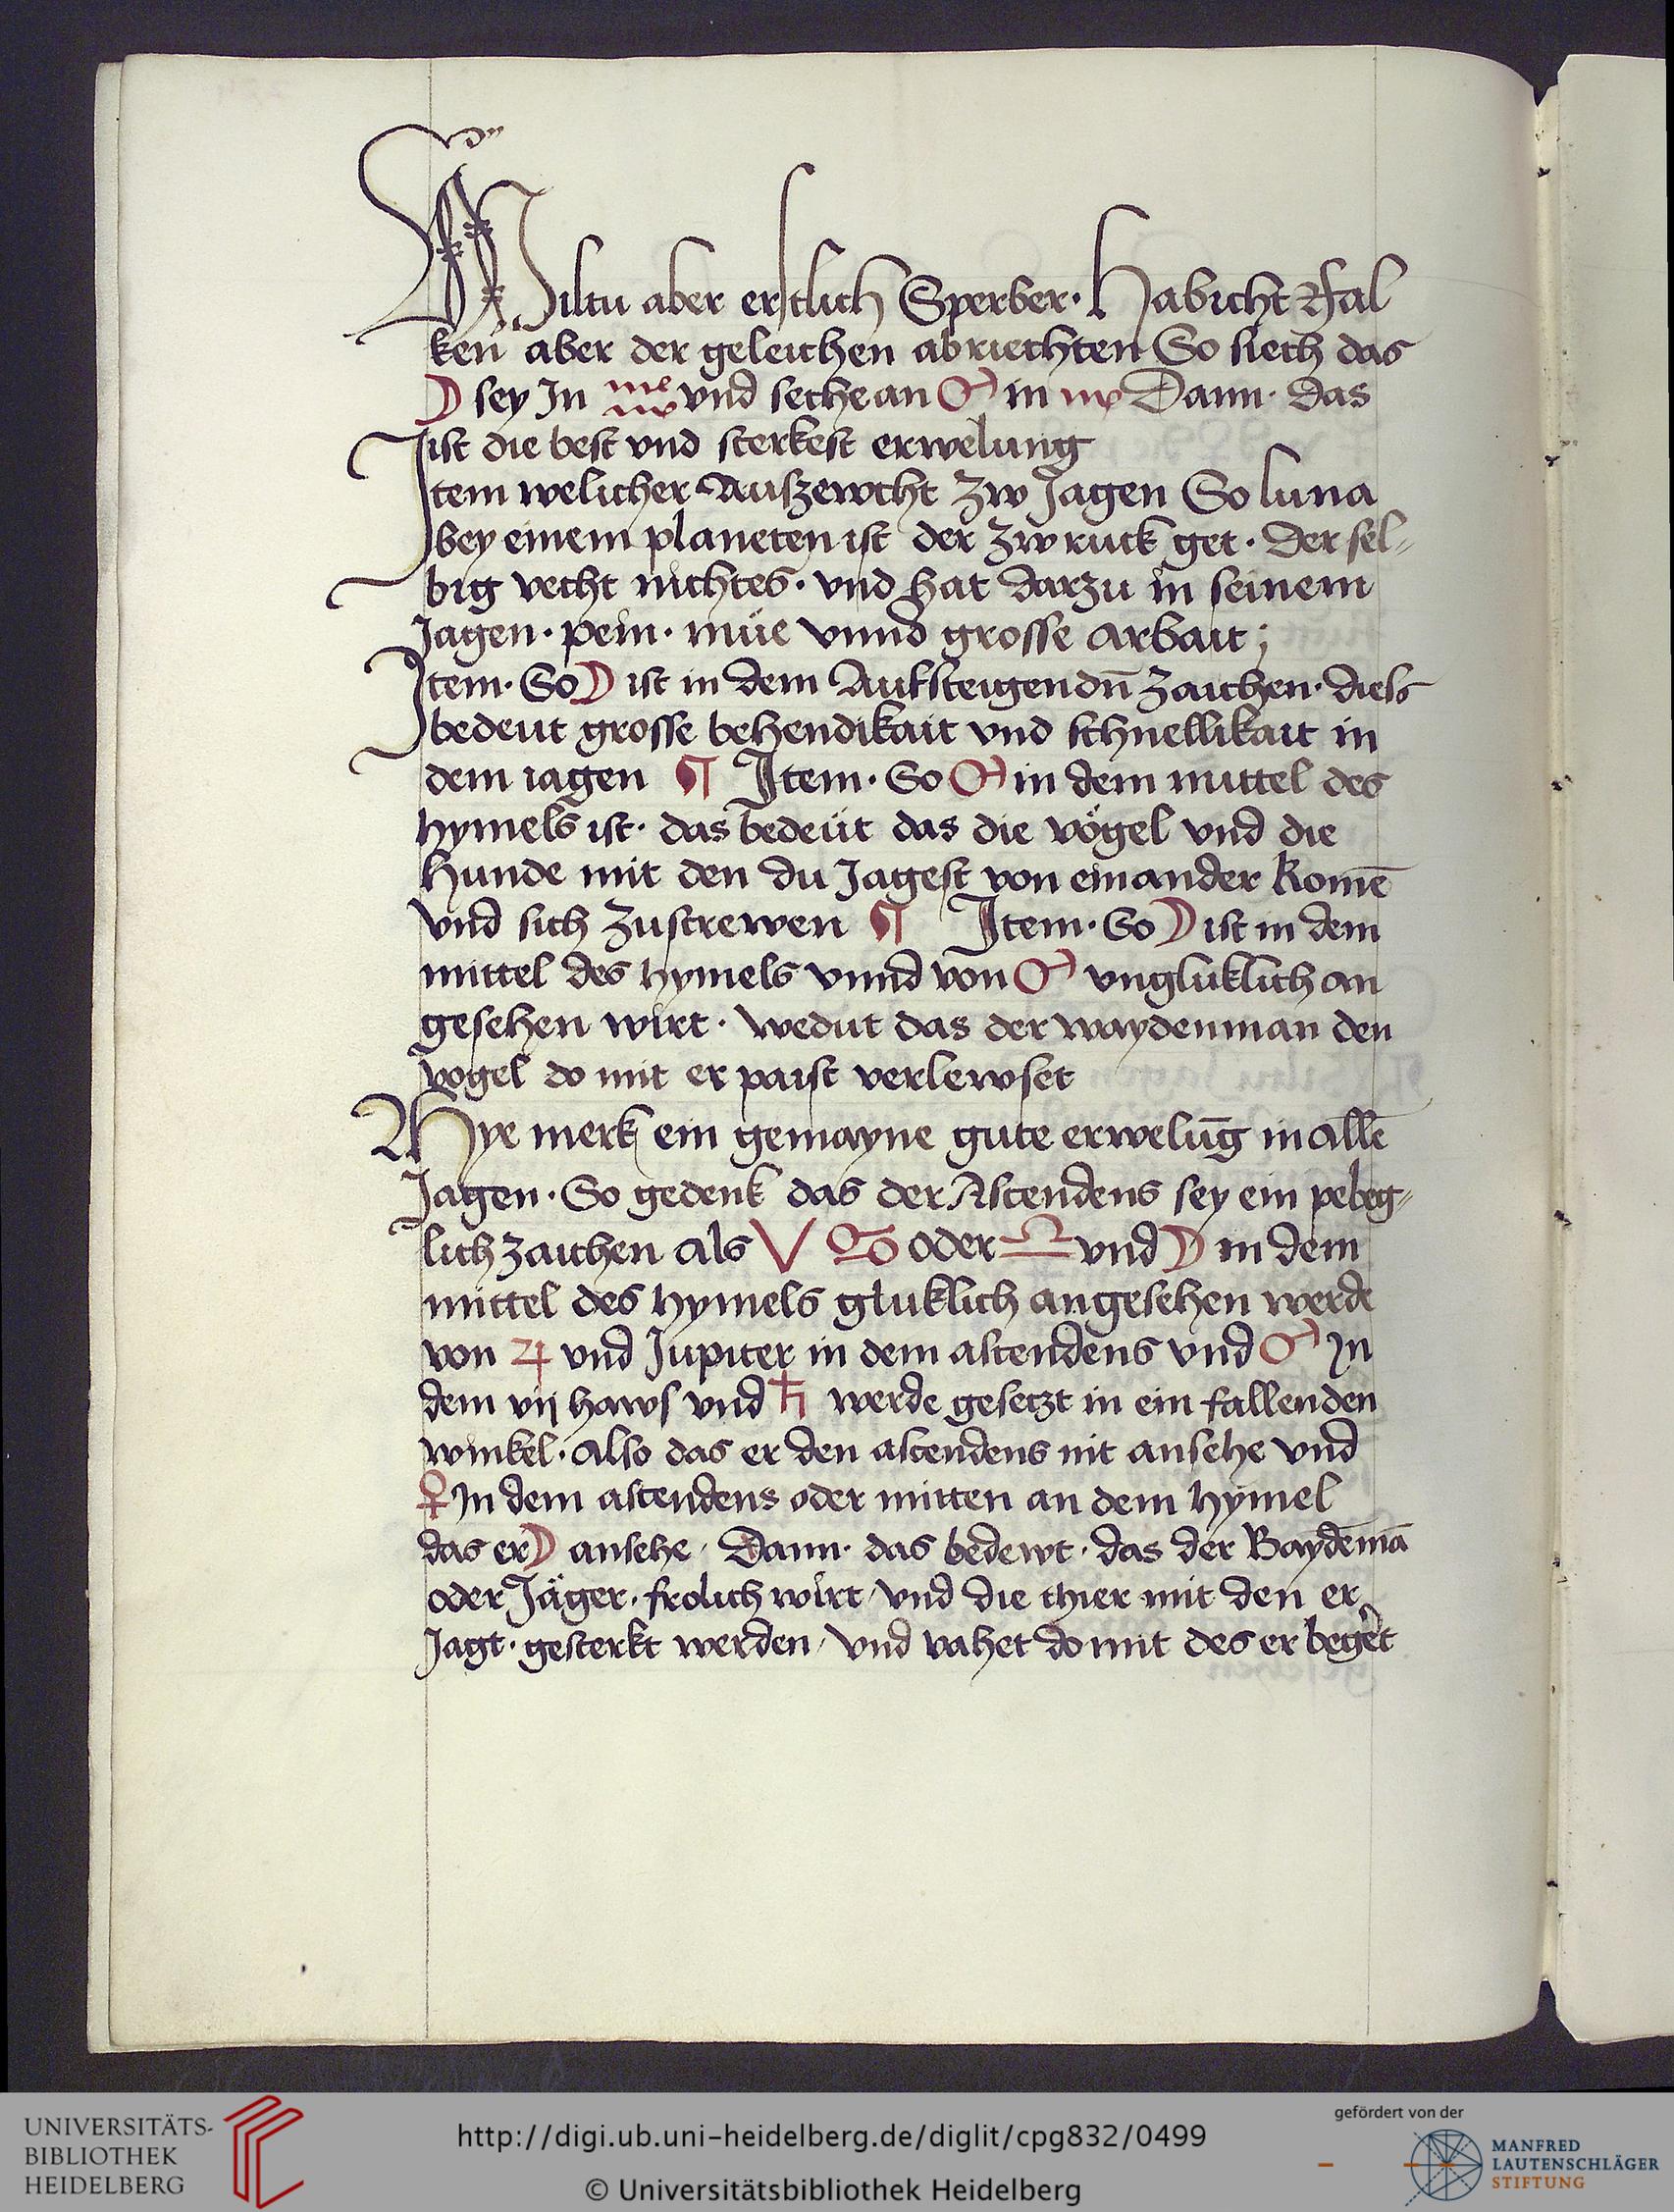 Wiltu aber erstlich Sperber · Habicht Fal
ken aber der geleichen abriechten So siech das
☽ sey In vnd seche an ♂ in Dann · das
ist die best vnd sterkest erwelung
Item welicher Auszewcht zw Jagen So luna
bey einem planeten ist der zw ruck get · der sel⸗
big vecht nichtes · vnd hat darzu in seinem
Jagen · pein · müe vnnd grosse arbait ;
Item · So ☽ ist in dem Aufsteigendn̄ zaichen · diess
bedeut grosse behendikait vnd schnellikait in
dem iagen ¶ Item · So ♂ in dem mittel des
hymels ist · das bedeüt das die vögel vnd die
Hunde mit den du Jagest von einander komē
vnd sich zustrewen ¶ Item · So ☽ ist in dem
mittel des hymels vnnd von ♂ vngluklich an
gesehen wirt · wedut das der waydenman den
vogel do mit er paist verlewset
Hye merk ein gemayne gute erwelūg in allē
Jagen · So gedenk das der Ascendens sey ein pebeg⸗
lich zaichen als ♈ ♋ oder ♎ vnd ☽ in dem
mittel des hymels gluklich angesehen werde
von ♃ vnd Jupiter in dem ascendens vnd ♂ In
dem vij haws vnd ♄ werde gesetzt in ein fallenden
winkel · also das er den ascendens nit ansehe vnd
♀ In dem ascendens oder mitten an dem hymel
das er ☽ ansehe / Dann · das bedewt · das der Waydēmā
oder Jäger · frolich wirt / vnd die thier mit den er
Jagt · gesterkt werden / vnd vahet do mit des er begert
UNIVERSITÄTS-
BIBLIOTHEK
HEIDELBERG
http://digi.ub.uni-heidelberg.de/diglit/cpg832/0499
© Universitätsbibliothek Heidelberg
gefördert von der
MANFRED
LAUTENSCHLÄGER
STIFTUNG